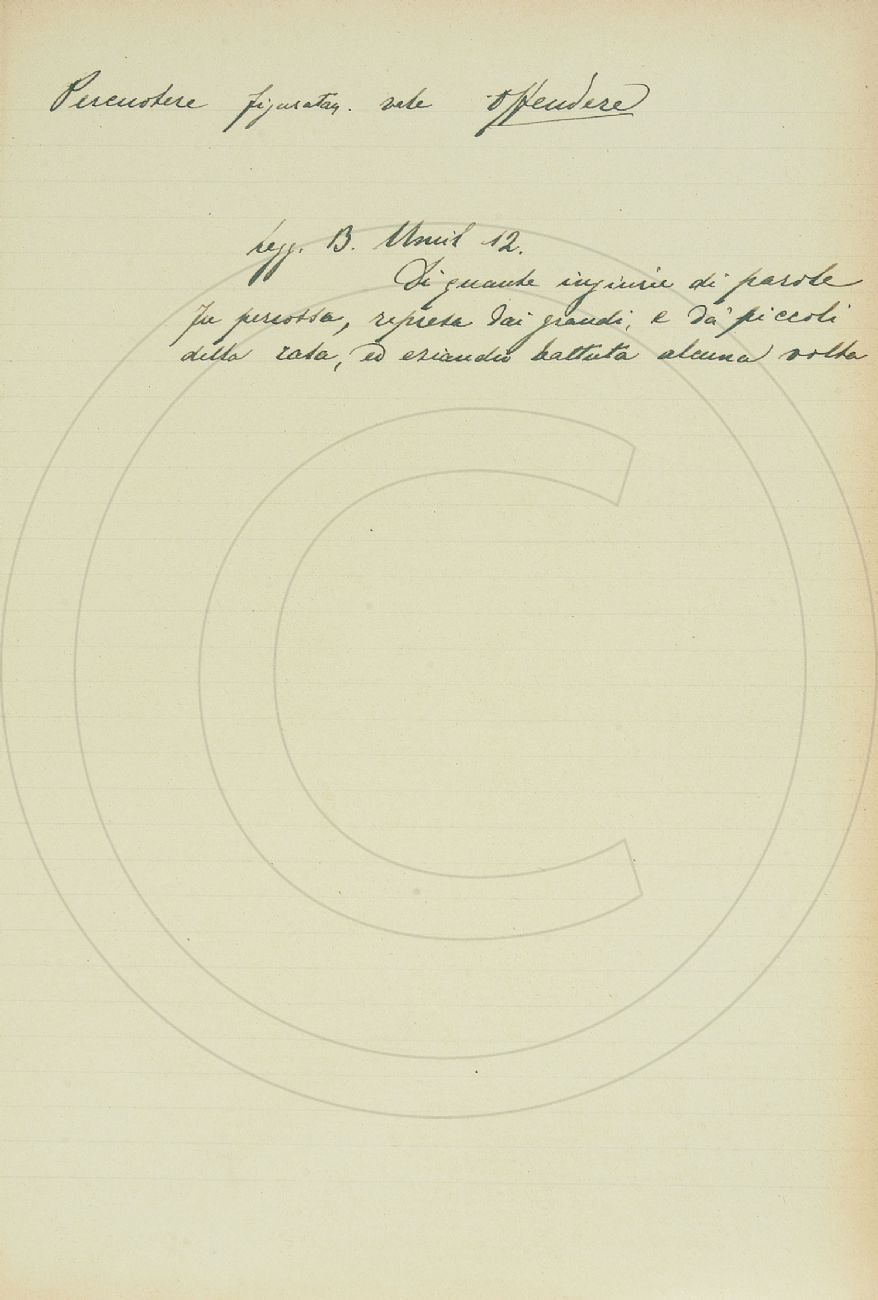 Percuotere figuratam. vale offendere
Legg. B. Umil 12.
Di quante ingiurie di parole
fu percossa, ripresa dai grandi, e da' piccoli
della casa, ed eziandio battuta alcuna volta